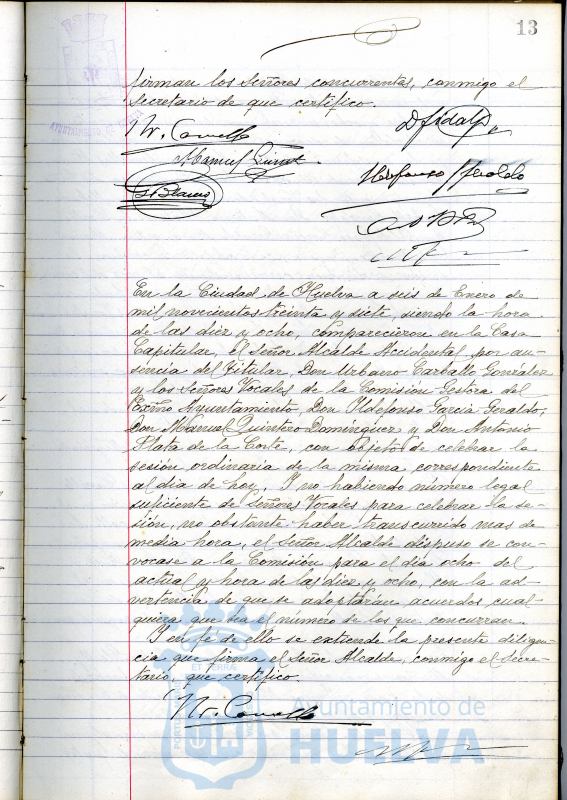 13
firman los Señores concurrentes, conmigo el
Secretario de que certifico.
En la Ciudad de Huelva a seis de Enero de
mil novecientos treinta y siete, siendo la hora
de las diez y ocho, comparecieron en la Casa
Capitular, el Señor Alcalde Accidental por au-
sencia del Titular, Don Urbano Carballo González
y los Señores Vocales de la Comisión Gestora del
Excmo Ayuntamiento, Don Ildefonso García Geraldo,
Don Manuel Quintero Domínguez y Don Antonio
Plata de la Corte, con objeto de celebrar la
sesión ordinaria de la misma correspondiente
al día de hoy. Y no habiendo número legal
suficiente de Señores Vocales para celebrar la se-
sión, no obstante haber transcurrido mas de
media hora, el Señor Alcalde dispuso se con-
vocase a la Comisión para el día ocho del
actual y hora de las diez y ocho, con la ad-
vertencia de que se adoptarán acuerdos cual-
quiera que sea el número de los que concurran.
Y en fe de ello se extiende la presente diligen-
cia que firma el Señor Alcalde, conmigo el Secre-
tario, que certifico.
Ayuntamiento de
HUELVA